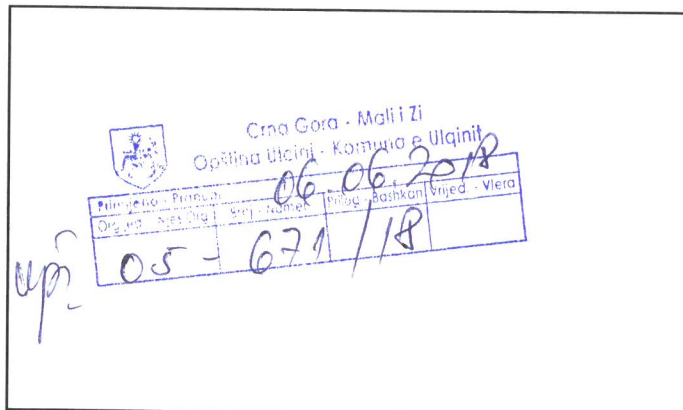 Crna Gora - Mali i Zi
Opština Ulcinj - Komuna e Ulqinit
Primljeno - Pranuar 06.06.2018
Org. Jed. - Njes. Org. Broj - Numer Prilog - Bashkan Vrijed. - Vlera
05 - 671 / 18